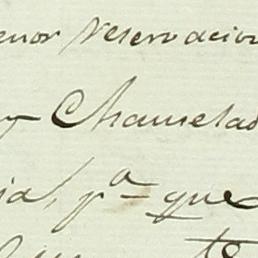 enor reservacion
y Chancelac
ia, pª que